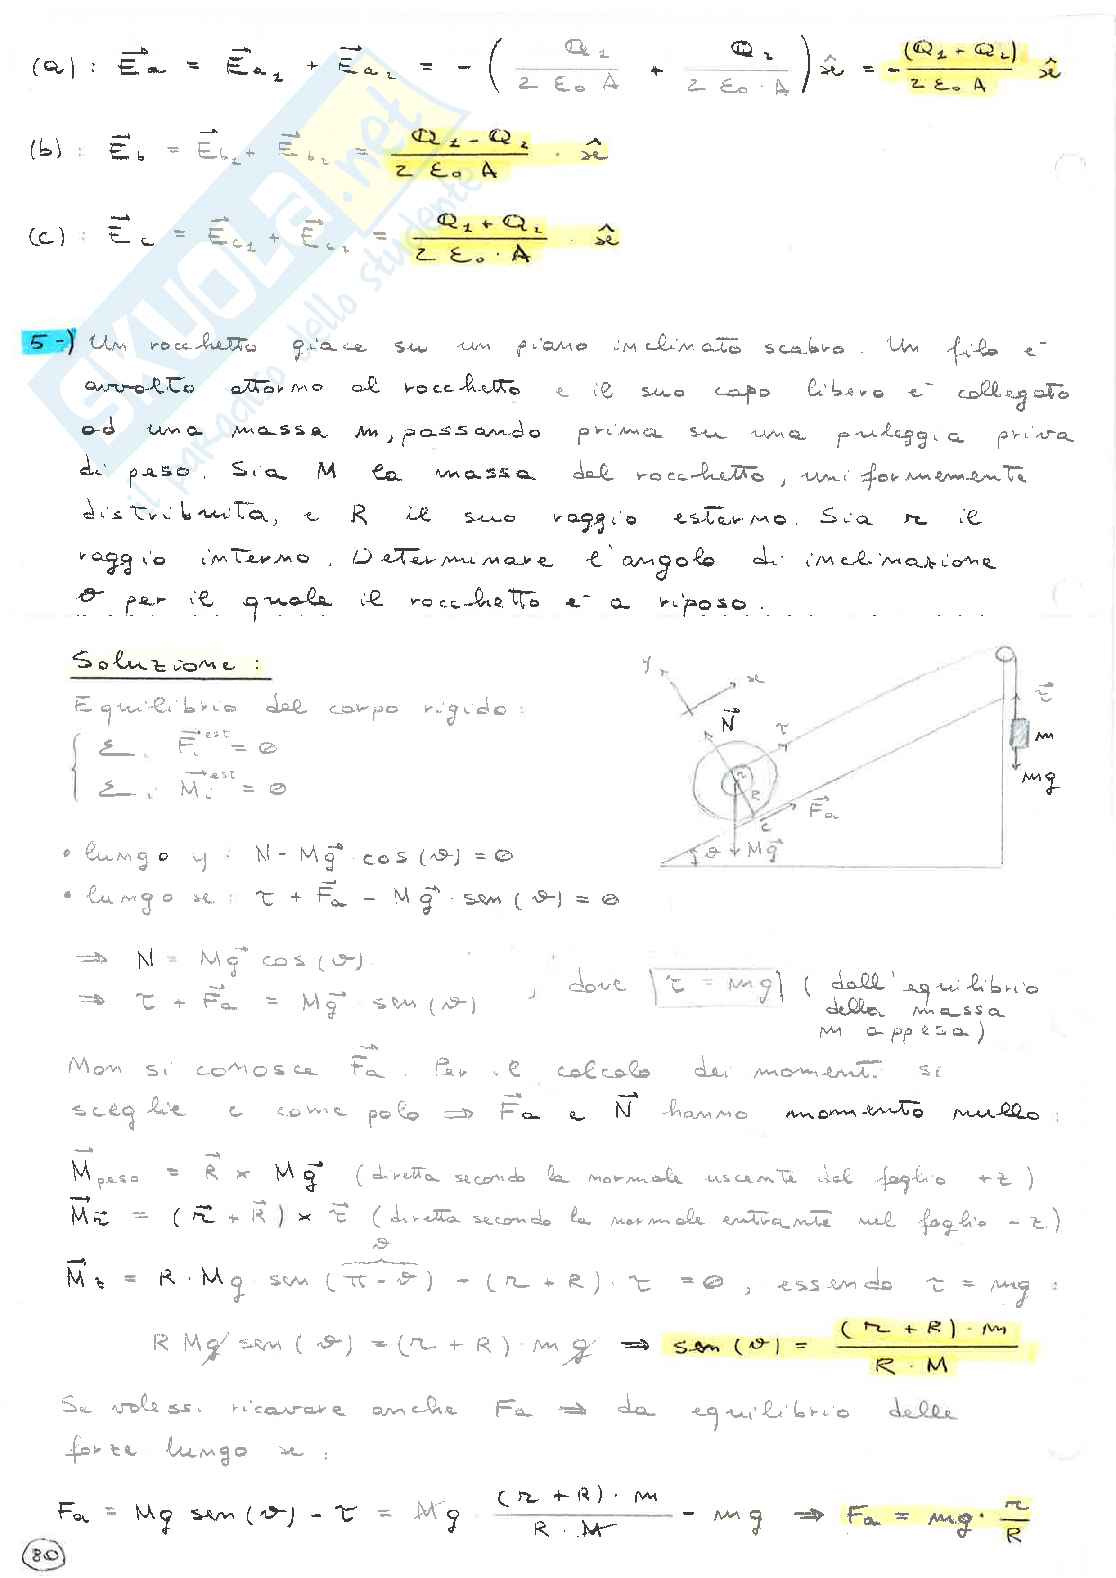 (a): E⃗a = E⃗a1 + E⃗a2 = - ( Q1 / 2 ε0 A + Q2 / 2 ε0·A ) x̂ = - (Q1 + Q2) / 2 ε0 A x̂
(b): E⃗b = E⃗b1 + E⃗b2 = Q1 - Q2 / 2 ε0 A · x̂
(c): E⃗c = E⃗c1 + E⃗c2 = Q1 + Q2 / 2 ε0·A · x̂
SKUOLA.net
il paradiso dello studente
5-) Un rocchetto giace su un piano inclinato scabro. Un filo è
avvolto attorno al rocchetto e il suo capo libero è collegato
ad una massa m, passando prima su una puleggia priva
di peso. Sia M la massa del rocchetto, uniformemente
distribuita, e R il suo raggio esterno. Sia r il
raggio interno. Determinare l'angolo di inclinazione
θ per il quale il rocchetto è a riposo.
Soluzione:
Equilibrio del corpo rigido:
{ Σi F⃗i^est = 0
Σi M⃗i^est = 0
y x N⃗ τ r R c F⃗a Mg⃗ θ τ⃗ m mg⃗
• lungo y: N - Mg⃗·cos(θ) = 0
• lungo x: τ + F⃗a - Mg⃗·sen(θ) = 0
⇒ N = Mg⃗ cos(θ)
⇒ τ + F⃗a = Mg⃗ sen(θ) , dove τ = mg (dall'equilibrio
della massa
m appesa)
Non si conosce F⃗a. Per il calcolo dei momenti si
sceglie c come polo ⇒ F⃗a e N⃗ hanno momento nullo:
M⃗peso = R⃗ × Mg⃗ (diretta secondo la normale uscente dal foglio +z)
M⃗τ = (r⃗ + R⃗) × τ⃗ (diretta secondo la normale entrante nel foglio -z)
θ
M⃗z = R·Mg sen(π-θ) - (r + R)·τ = 0, essendo τ = mg:
R Mg sen(θ) = (r + R)·mg ⇒ sen(θ) = (r + R)·m / R·M
Se volessi ricavare anche Fa ⇒ da equilibrio delle
forze lungo x:
Fa = Mg sen(θ) - τ = Mg · (r + R)·m / R·M - mg ⇒ Fa = mg· r / R
80